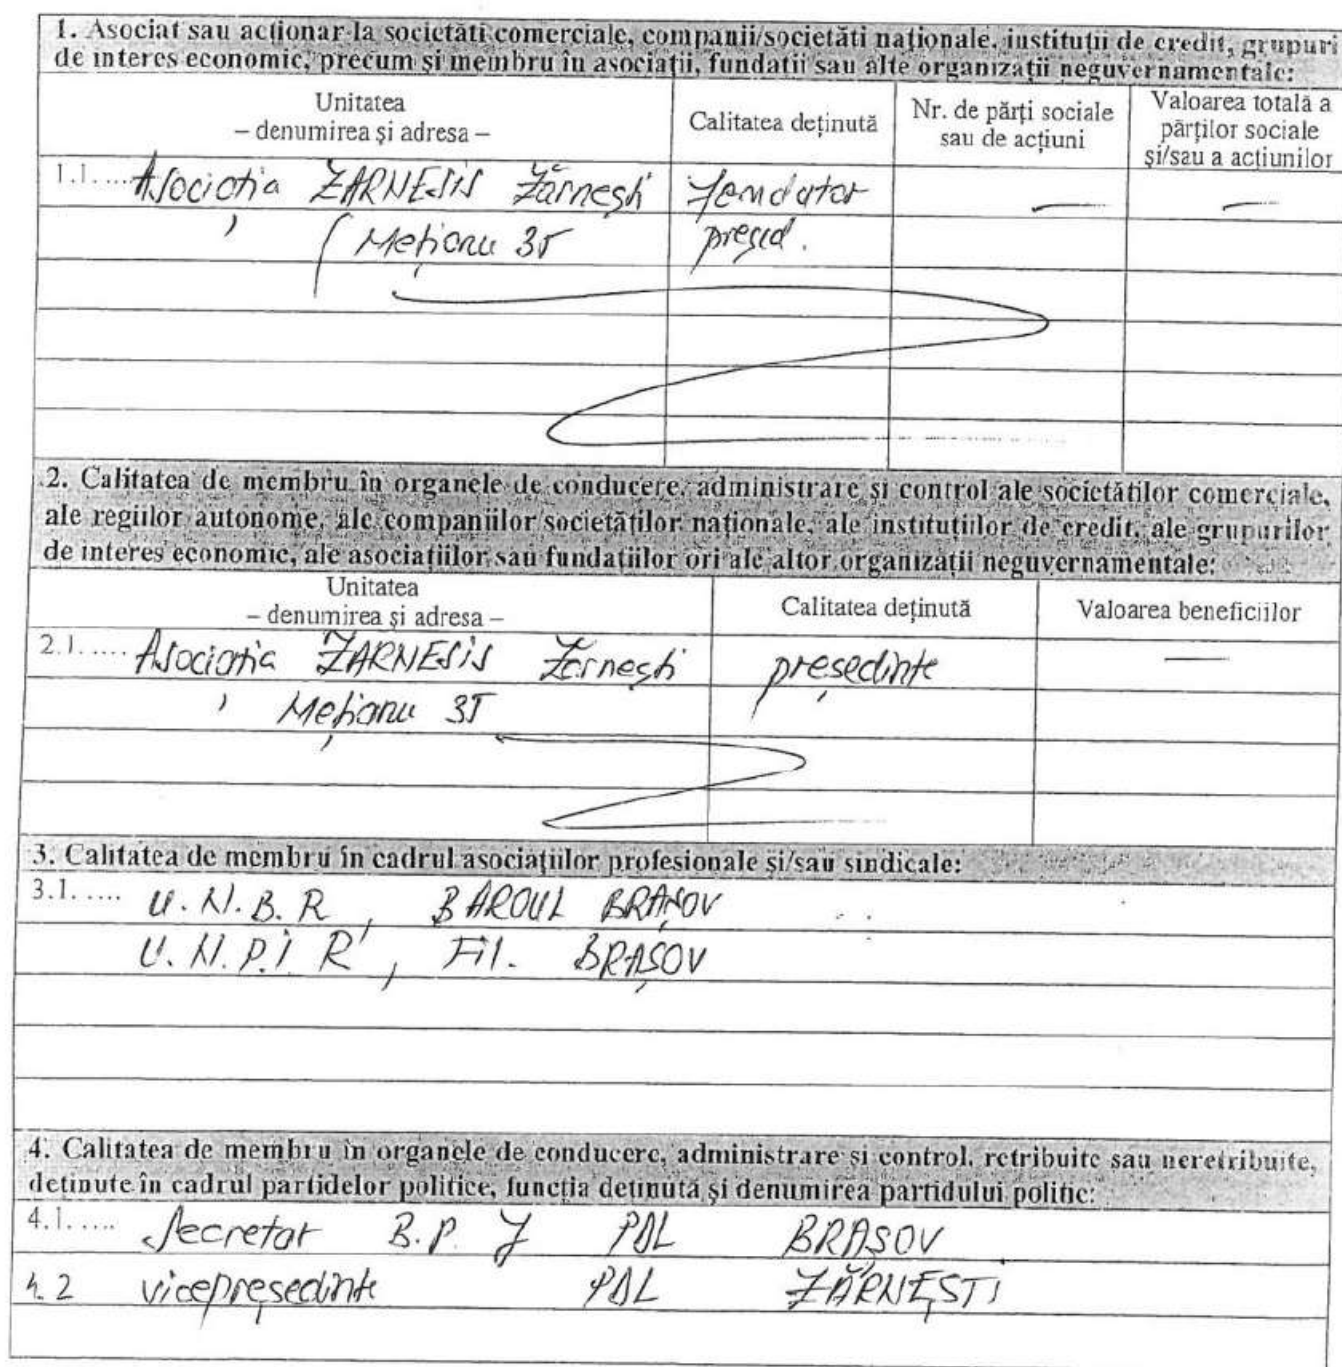 1. Asociat sau acționar la societăti comerciale, companii/societăti naționale, instituții de credit, grupuri
de interes economic, precum și membru în asociații, fundatii sau alte organizații neguvernamentale:
Unitatea
– denumirea și adresa –
Calitatea deținută
Nr. de părți sociale
sau de acțiuni
Valoarea totală a
părților sociale
și/sau a acțiunilor
1.1. ... Asociația ZARNESIS Zărnești fondator — —
( Mețianu 35 președ.
2. Calitatea de membru în organele de conducere, administrare și control ale societăților comerciale,
ale regiilor autonome, ale companiilor/societăților naționale, ale instituțiilor de credit, ale grupurilor
de interes economic, ale asociațiilor sau fundațiilor ori ale altor organizații neguvernamentale:
Unitatea
– denumirea și adresa –
Calitatea deținută
Valoarea beneficiilor
2.1. .... Asociația ZARNESIS Zărnești președinte —
Mețianu 35
3. Calitatea de membru în cadrul asociațiilor profesionale și/sau sindicale:
3.1. .... U.N.B.R, BAROUL BRAȘOV
U.N.P.I.R, Fil. BRAȘOV
4. Calitatea de membru în organele de conducere, administrare și control, retribuite sau neretribuite,
deținute în cadrul partidelor politice, funcția deținută și denumirea partidului politic:
4.1. .... Secretar B.P.J PDL BRAȘOV
4.2 vicepreședinte PDL ZĂRNEȘTI